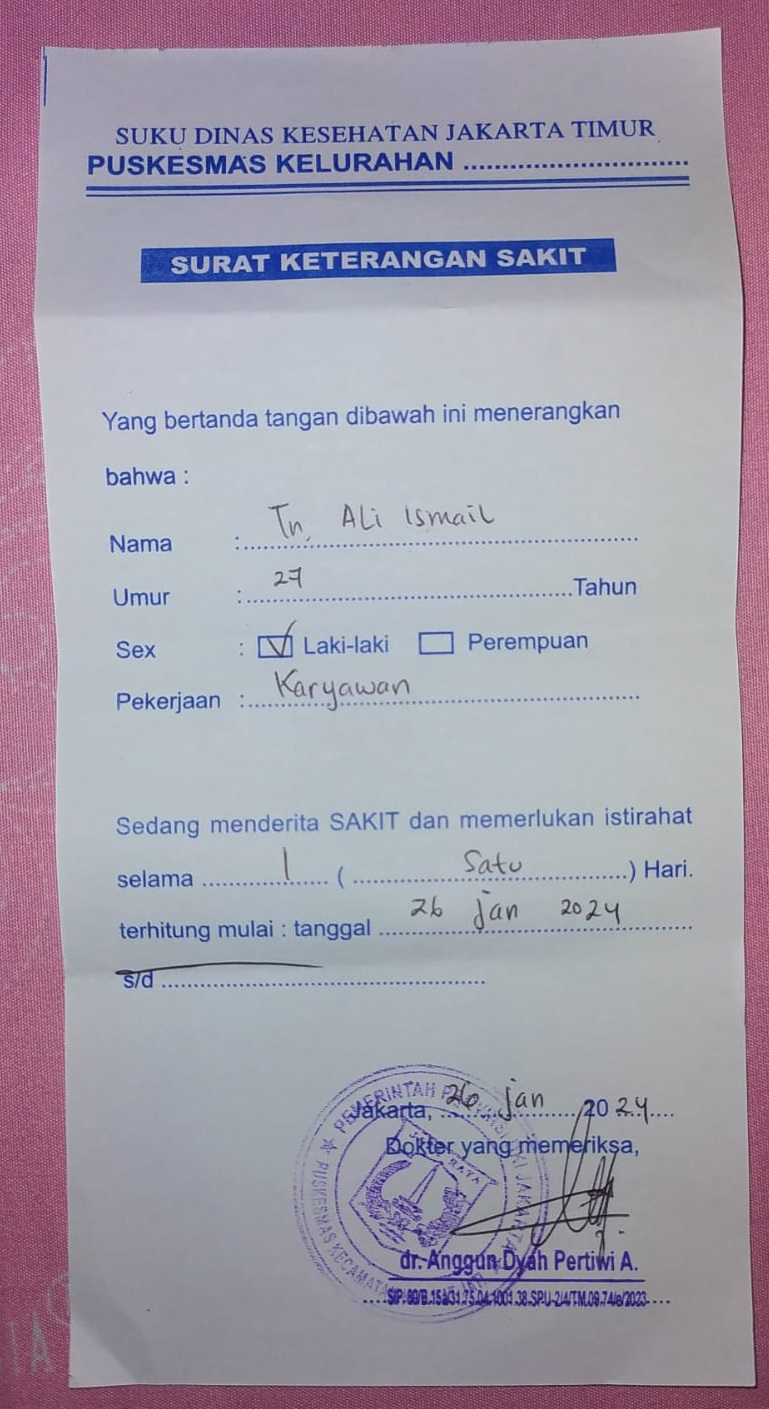 SUKU DINAS KESEHATAN JAKARTA TIMUR
PUSKESMAS KELURAHAN ..............................
SURAT KETERANGAN SAKIT
Yang bertanda tangan dibawah ini menerangkan
bahwa :
Nama : Tn. Ali Ismail
Umur : 27 Tahun
Sex : Laki-laki Perempuan
Pekerjaan : Karyawan
Sedang menderita SAKIT dan memerlukan istirahat
selama 1 ( Satu ) Hari.
terhitung mulai : tanggal 26 jan 2024
s/d ..............................
Jakarta, 26 jan 2024
Dokter yang memeriksa,
dr. Anggun Dyah Pertiwi A.
PEMERINTAH PROVINSI DKI JAKARTA
PUSKESMAS KECAMATAN
JAYA RAYA